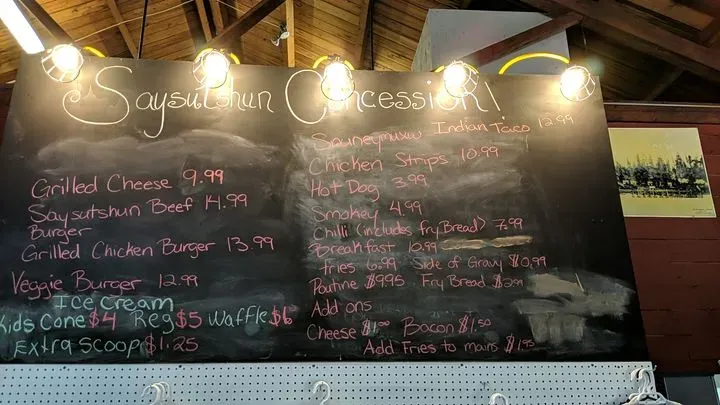 Saysutshun Concession!
Grilled Cheese 9.99
Saysutshun Beef 14.99
Burger
Grilled Chicken Burger 13.99
Veggie Burger 12.99
Ice Cream
Kids Cone $4 Reg $5 Waffle $6
Extra Scoop $1.25
Sauneymuxw Indian Taco 12.99
Chicken Strips 10.99
Hot Dog 3.99
Smokey 4.99
Chilli (includes fry Bread) 7.99
Breakfast 10.99
fries 6.99 Side of Gravy $0.99
Poutine $9.95 Fry Bread $2.00
Add ons
Cheese $1.00 Bacon $1.50
Add Fries to mains $1.95